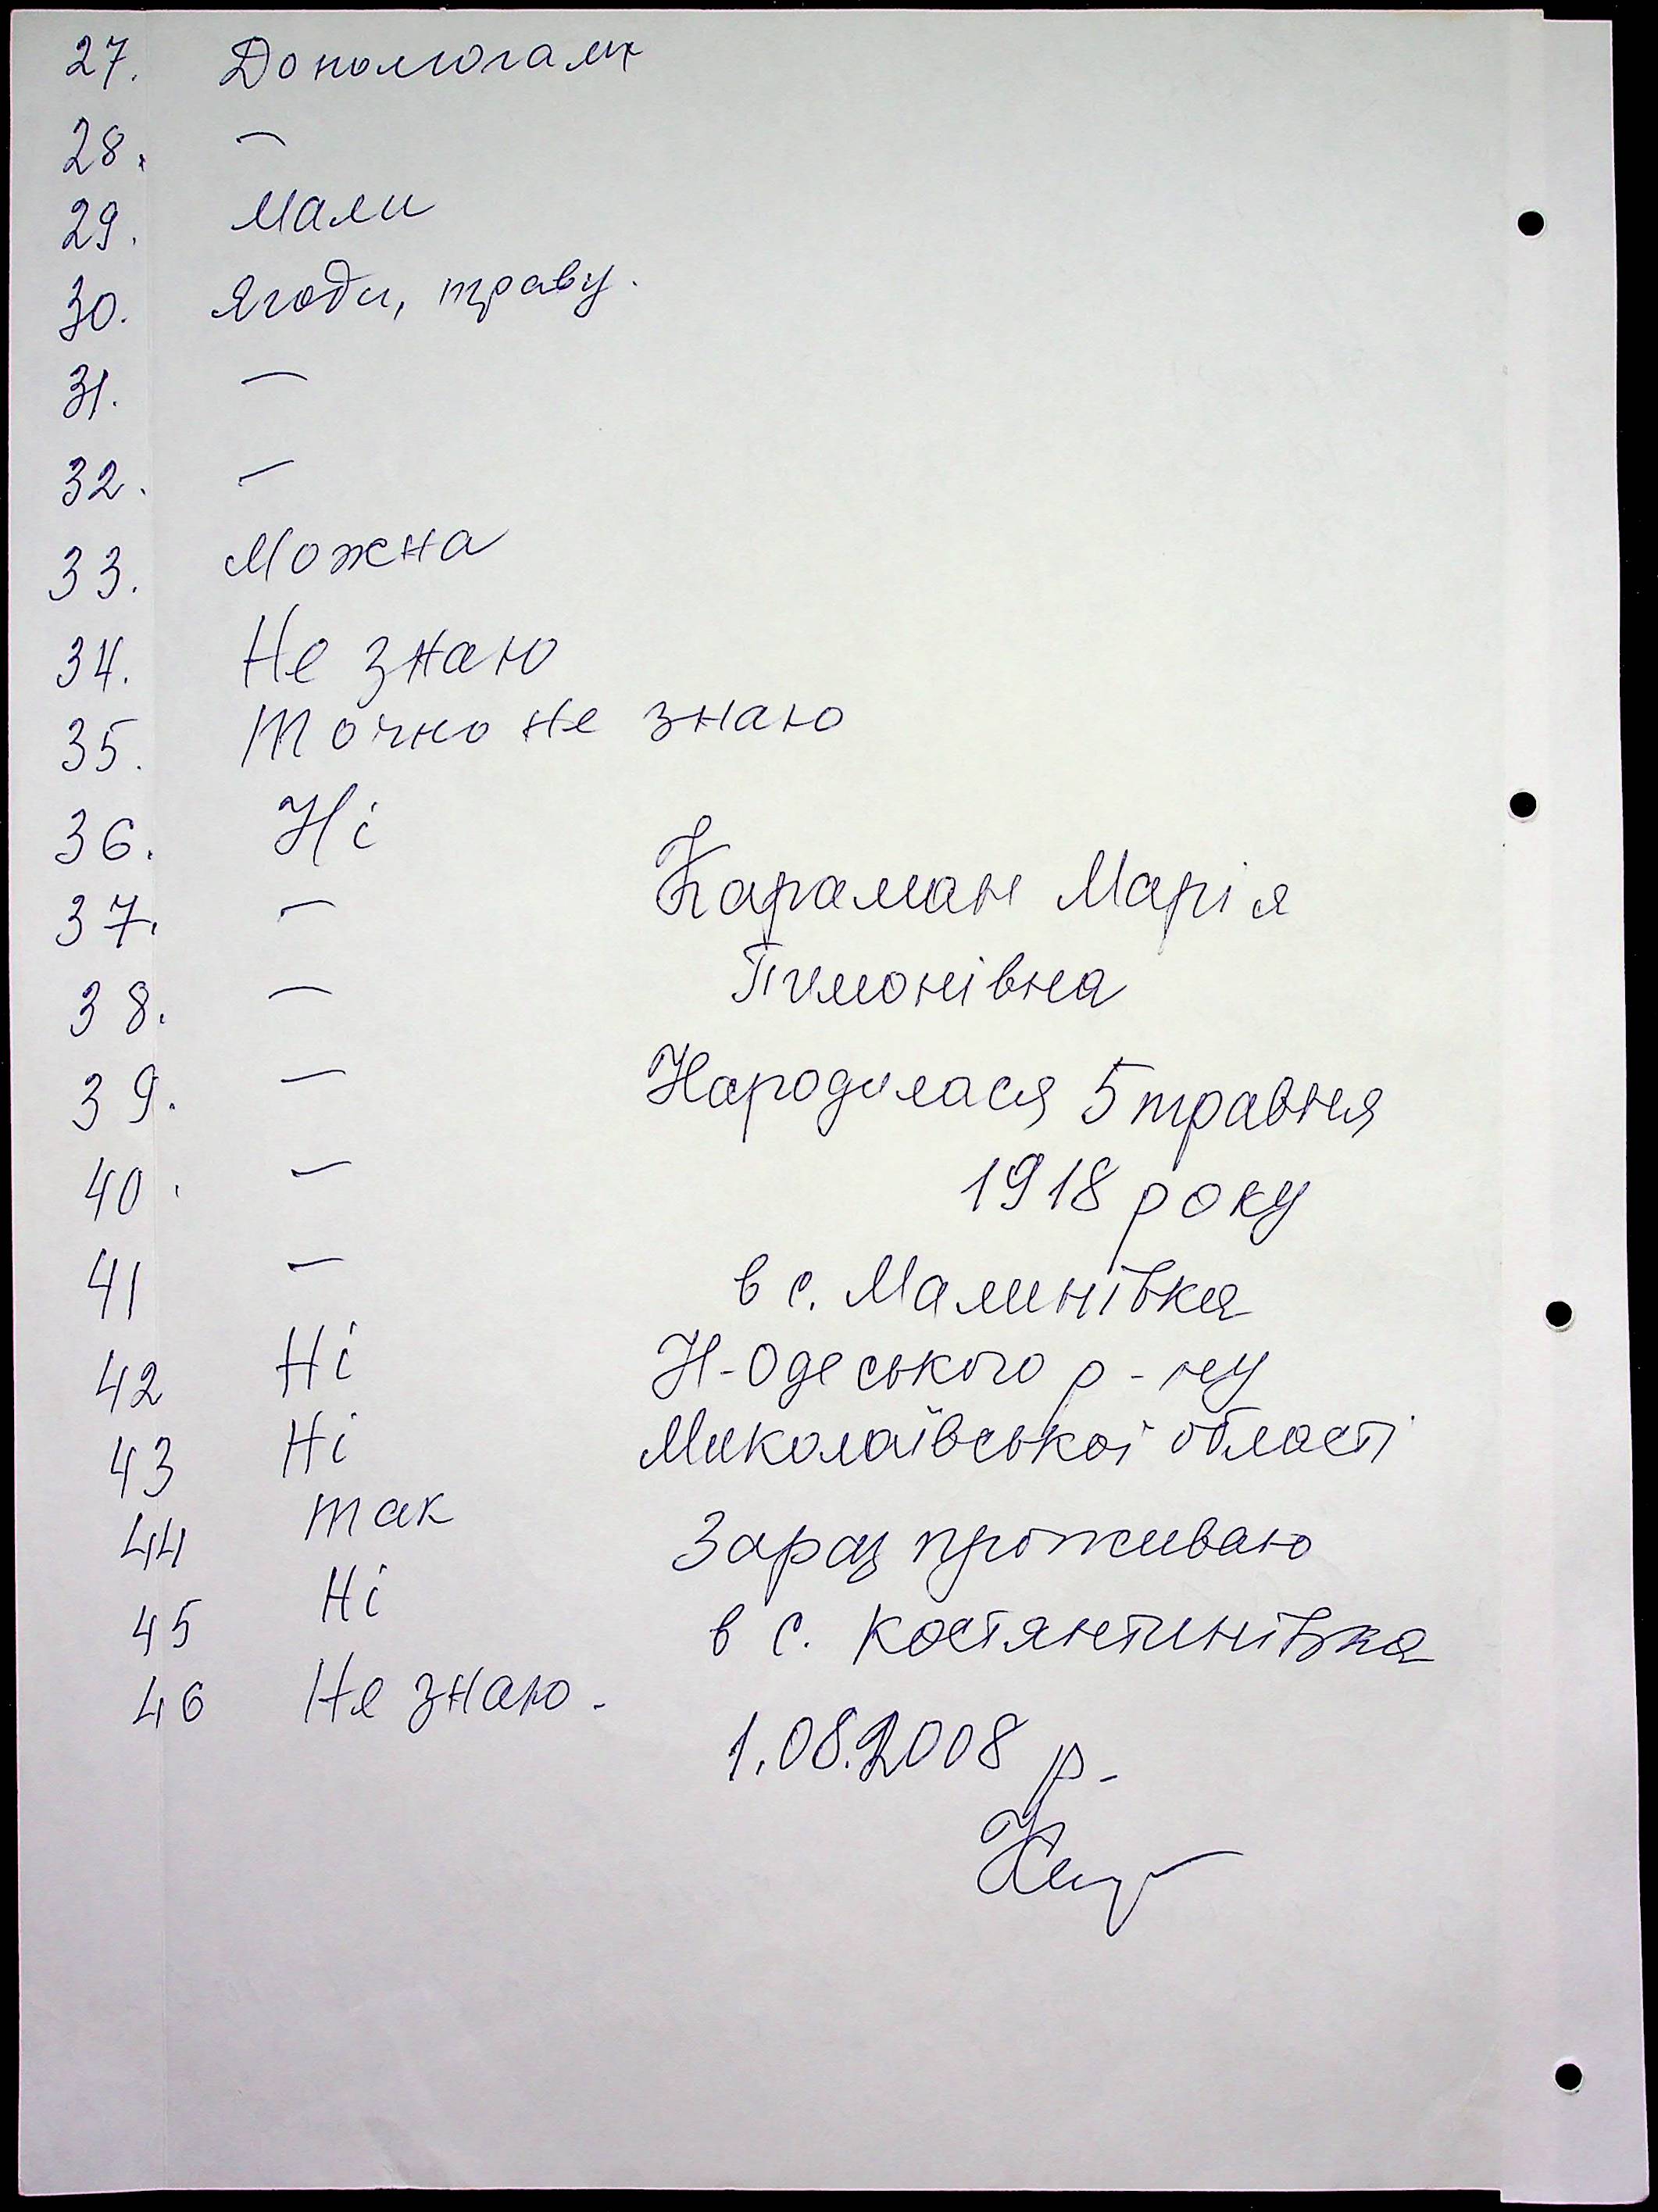 27. Допомогали
28. –
29. Мали
30. Ягоди, траву.
31. –
32. –
33. Можна
34. Не знаю
35. Точно не знаю
36. Ні
37. –
38. –
39. –
40. –
41 –
42 Ні
43 Ні
44 Так
45 Ні
46 Не знаю.
Караман Марія
Тимонівна
Народилася 5 травня
1918 року
в с. Малинівка
Н-Одеського р-ну
Миколаївської області
Зараз проживаю
в с. Костянтинівка
1.08.2008 р.